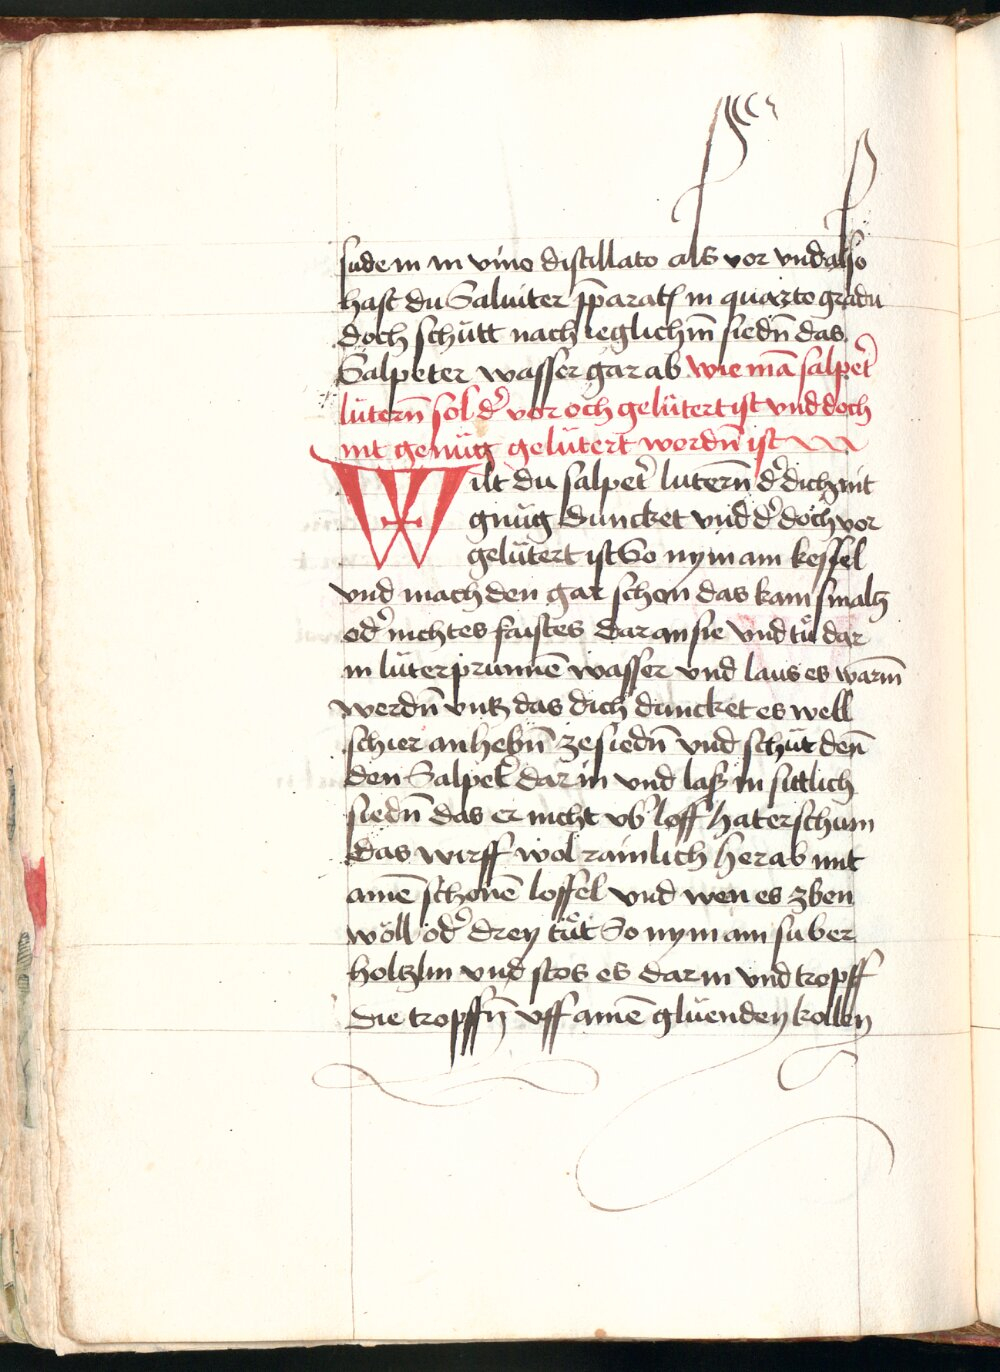 sudem in vino distillato als vor vnd also
hast du Saluiter pp̄arat in quarto gradu
doch schütt nach ieglichm̄ siedn̄ das
Salpeter wasser gar ab wie mā salpet̄
lütern̄ sol d̄ vor och gelütert ist vnd doch
nit genüg gelütert wordn̄ ist
Wilt du salpet̄ lutern̄ d̄ dich nit
gnüg duncket vnd d̄ doch vor
gelütert ist So nym ain kessel
vnd mach den gar schon das kain smaltz
od̄ nichtes faistes daran sie vnd tů dar
in lüter prunnē wasser vnd laus es warm̄
werdn̄ vntz das dich duncket es well
schier anhebn̄ ze siedn̄ vnd schüt den̄
den Salpet̄ dar in vnd lasz in sittlich
siedn̄ das er nicht vb̄ loff hat er schum
das wirff wol rainlich herab mit
ainē schonē loffel vnd wen es zben
wöll od̄ drey tůt So nym ain suber
holtzlin vnd stos es dar in vnd tropff
die tropffn̄ vff ainē glüenden kollen